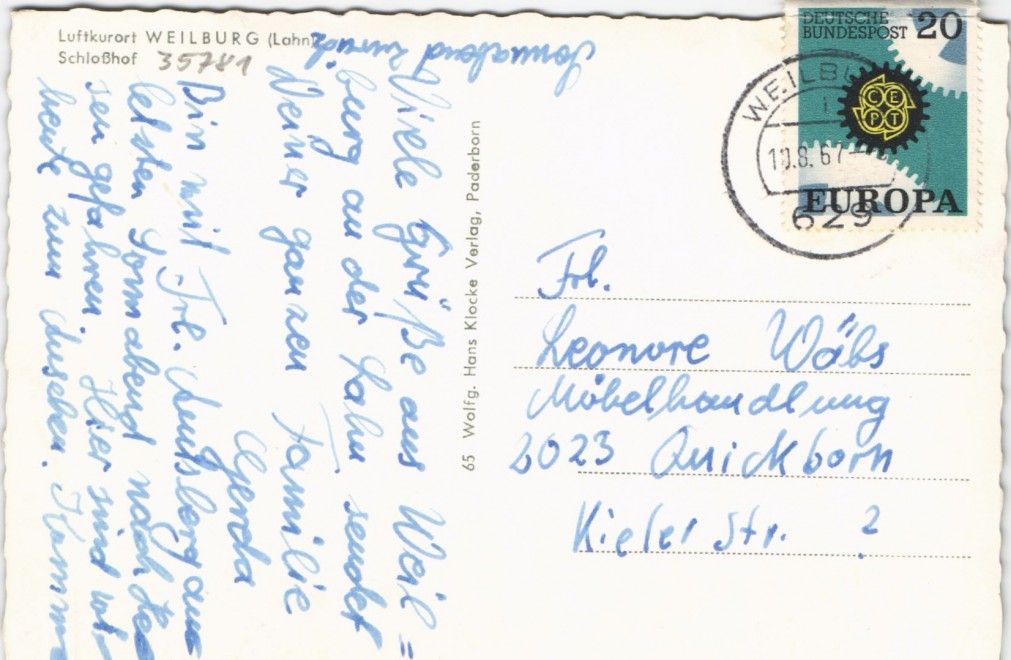 Luftkurort WEILBURG (Lahn)
Schloßhof 35781
Viele Grüße aus Weil=
burg an der Lahn sendet
Deiner ganzen Familie
Gerda
Bin mit Frl. am
letzten Sonnabend nach
sen gefahren. Hier sind wir
heute zum Ansehen. Komme
Sonnabend zurück.
65 Wolfg. Hans Klocke Verlag, Paderborn
DEUTSCHE
BUNDESPOST 20
CEPT
EUROPA
WEILBU
10.8.67
629
Frl.
Leonore Wäbs
Möbelhandlung
2023 Quickborn
Kieler Str. ?